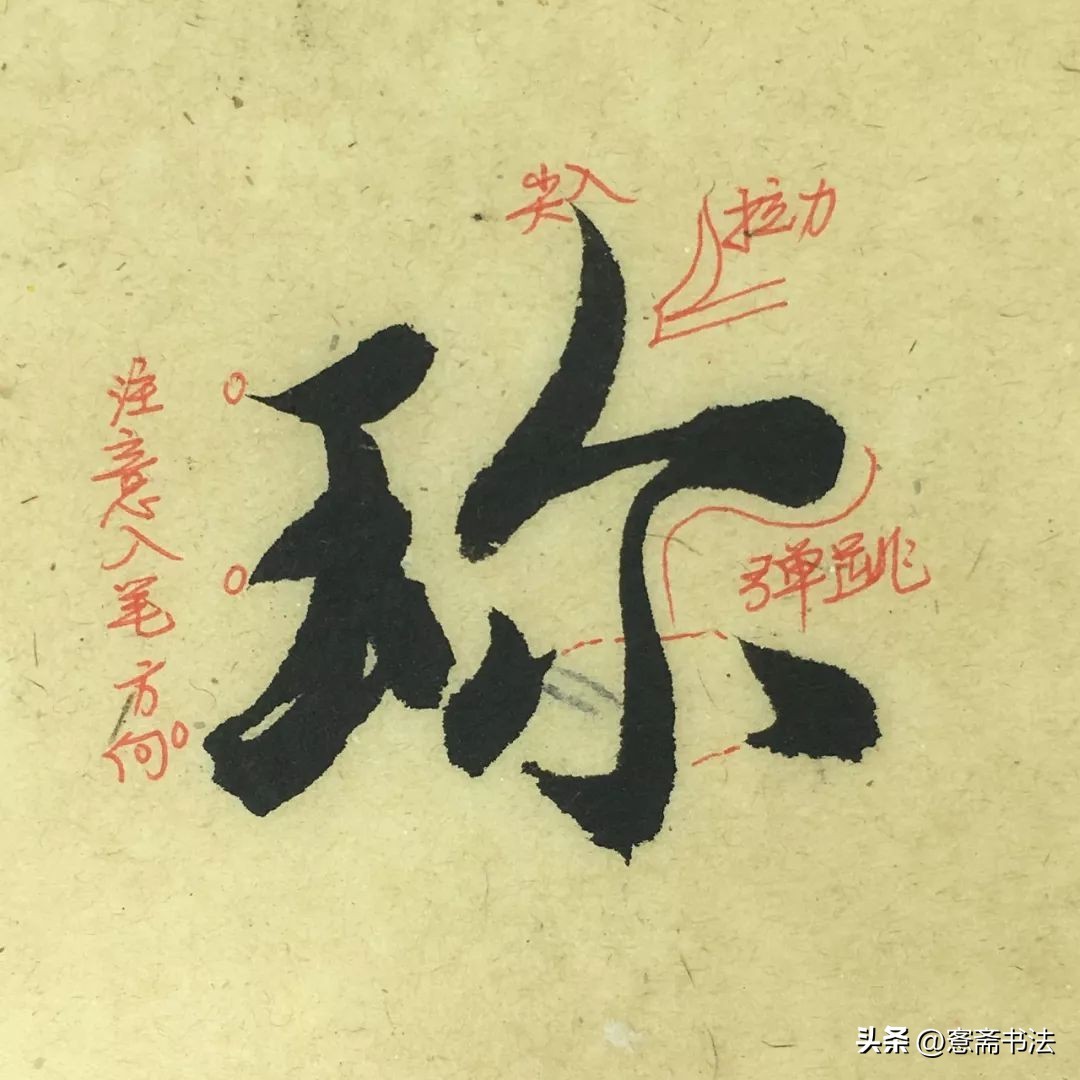 尖入
拉力
注意入笔方向
珎
弹跳
头条 @愙斋书法